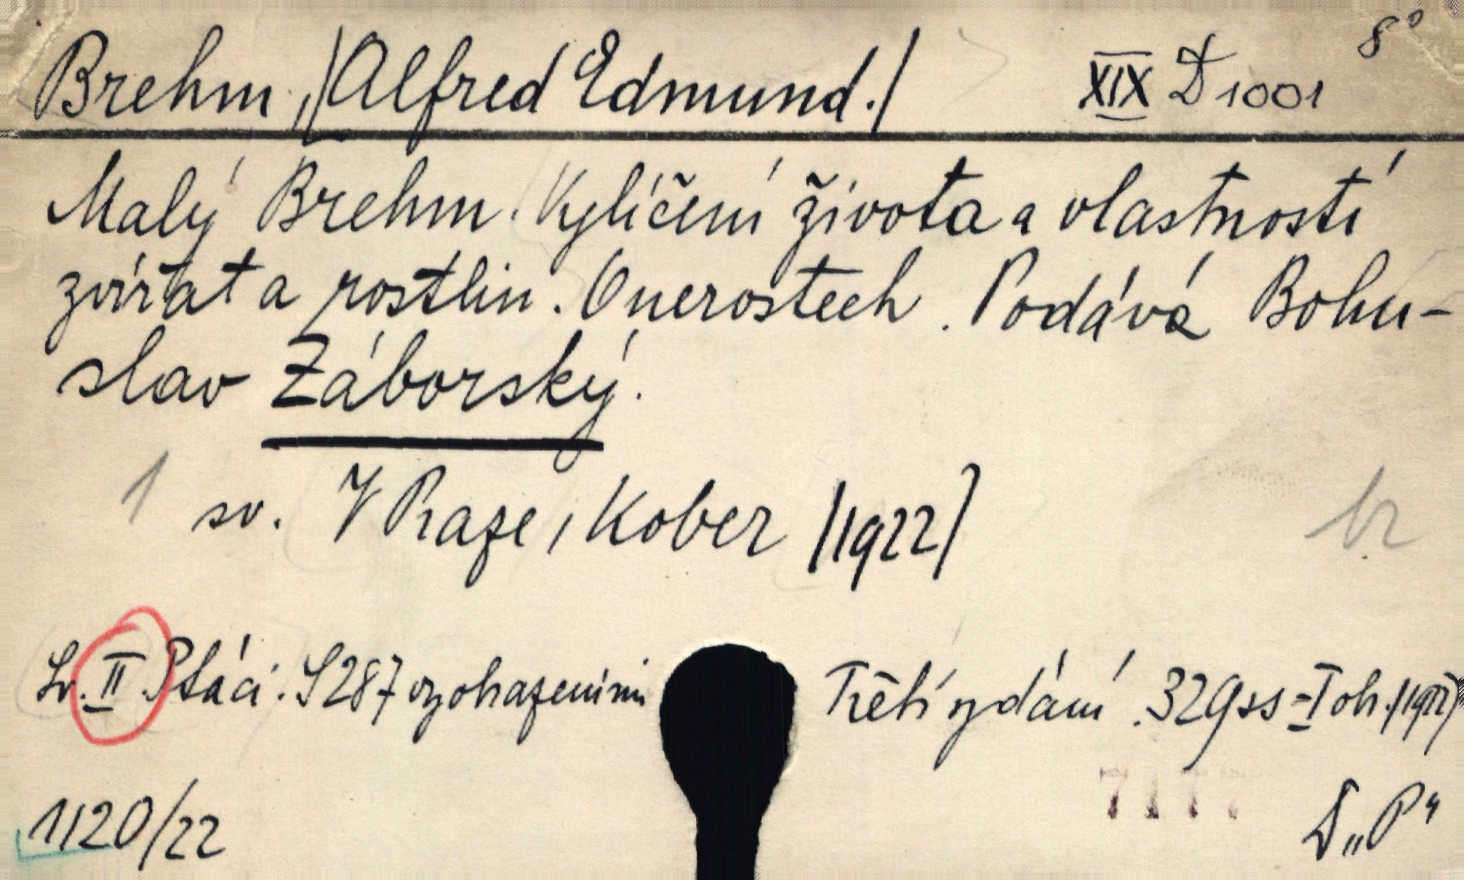 8°
Brehm, /Alfred Edmund./ XIX D 1001
Malý Brehm. Vylíčení života a vlastností
zvířat a rostlin. O nerostech. Podává Bohu-
slav Záborský.
1 sv. V Praze, Kober /1922/
Sv. II Ptáci. S 287 vyobrazeními Třetí vydání. 329 ss = I ob. /1922/
1120/22 D „P"